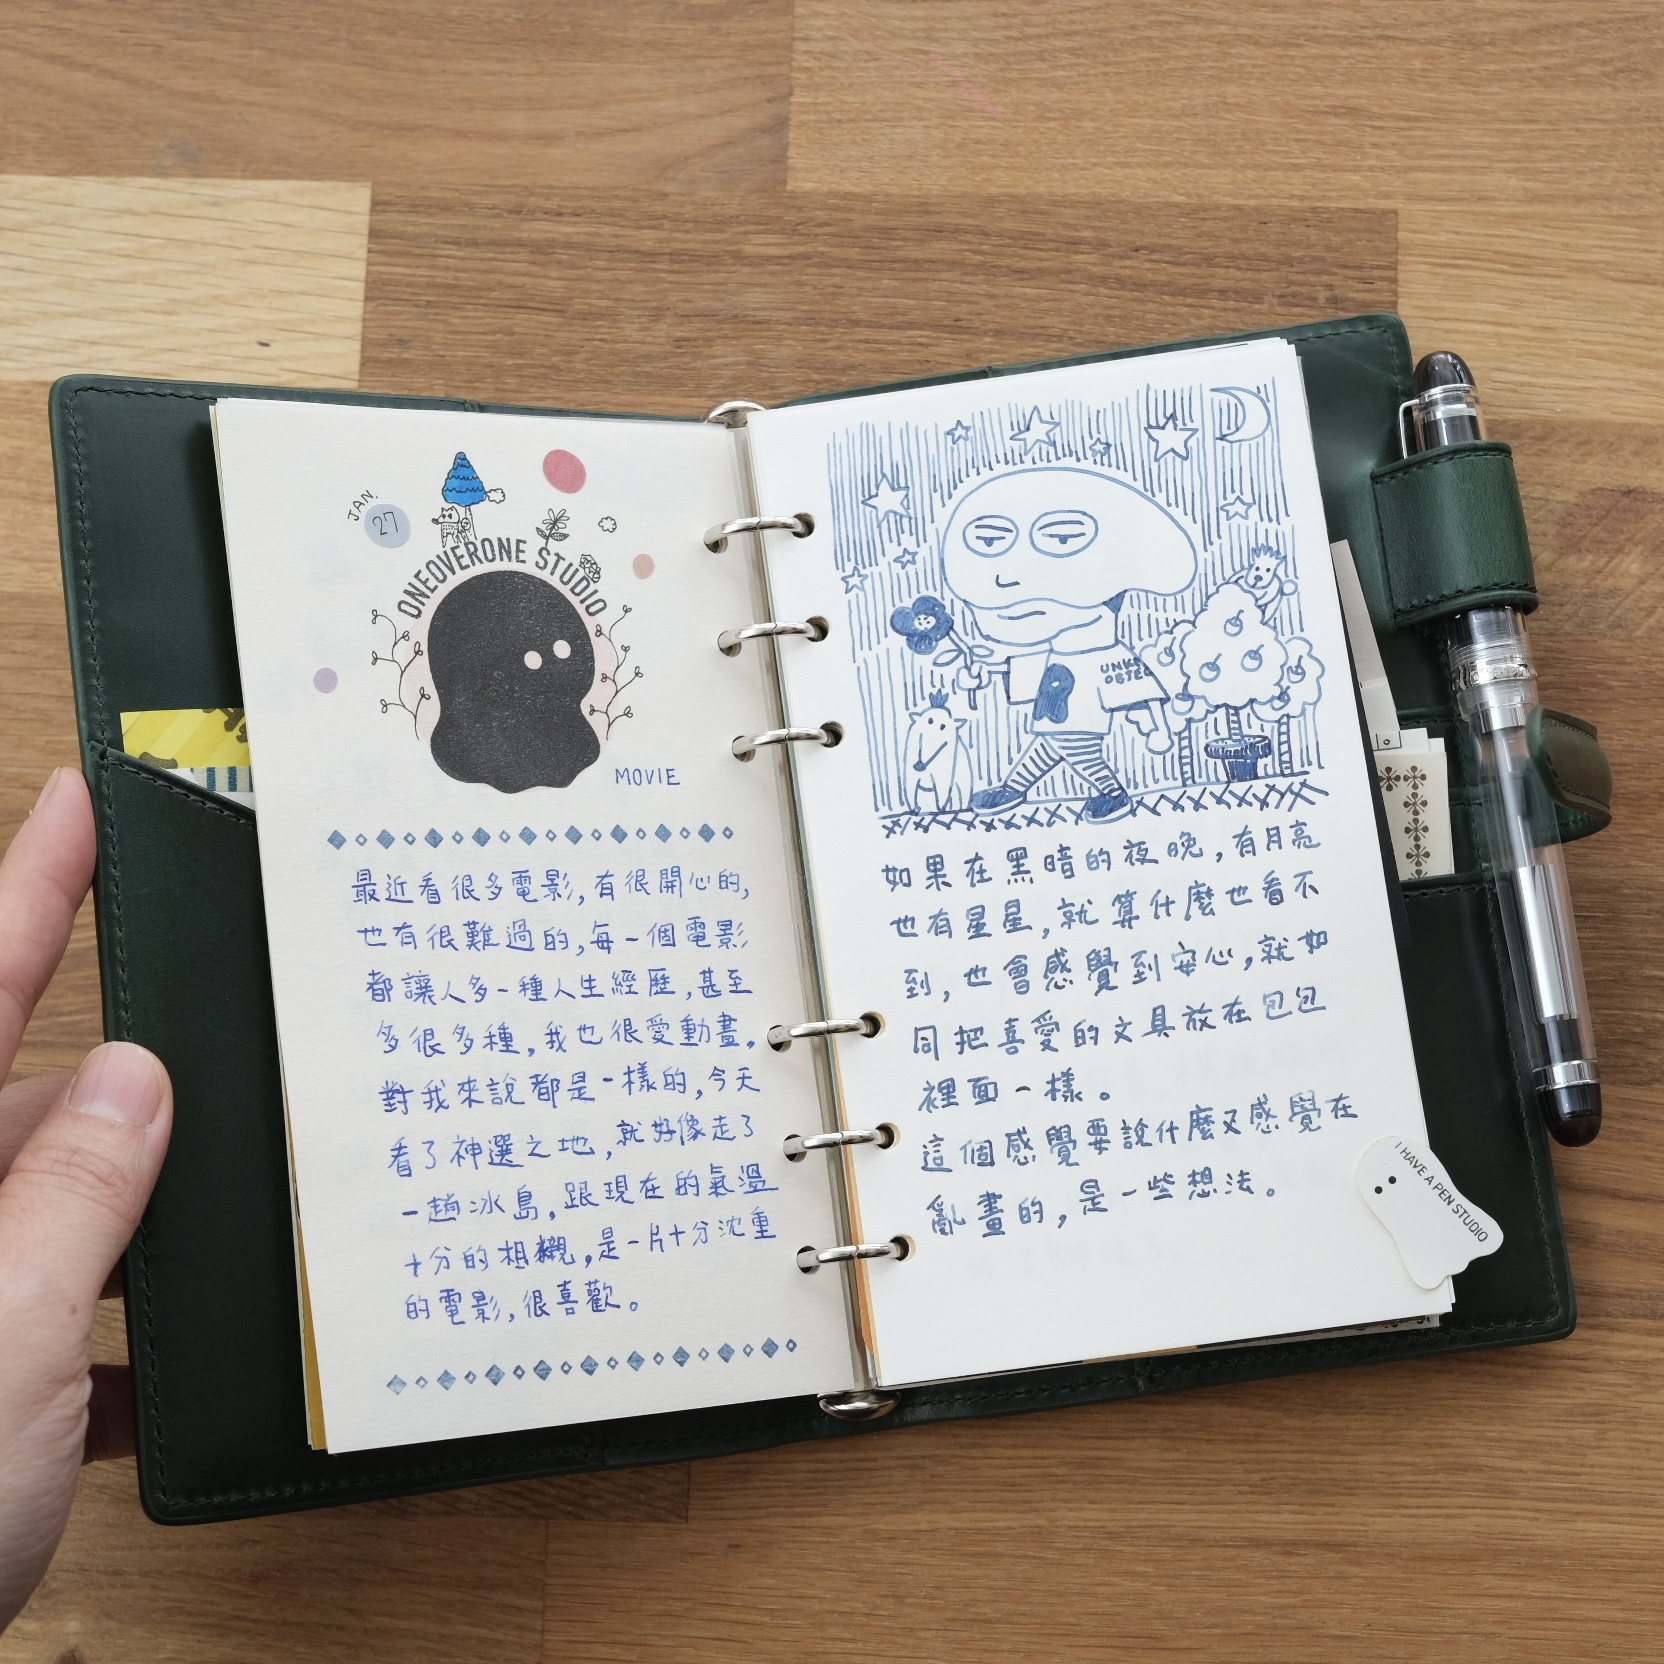 JAN.
27
ONEOVERONE STUDIO
MOVIE
最近看很多電影,有很開心的,
也有很難過的,每一個電影
都讓人多一種人生經歷,甚至
多很多種,我也很愛動畫。
對我來說都是一樣的,今天
看了神選之地,就好像走了
一趟冰島,跟現在的氣溫
十分的相襯,是一片十分沈重
的電影,很喜歡。
UNK
OBJEC
如果在黑暗的夜晚,有月亮
也有星星,就算什麼也看不
到,也會感覺到安心,就如
同把喜愛的文具放在包包
裡面一樣。
這個感覺要說什麼又感覺在
亂畫的,是一些想法。
I HAVE A PEN STUDIO